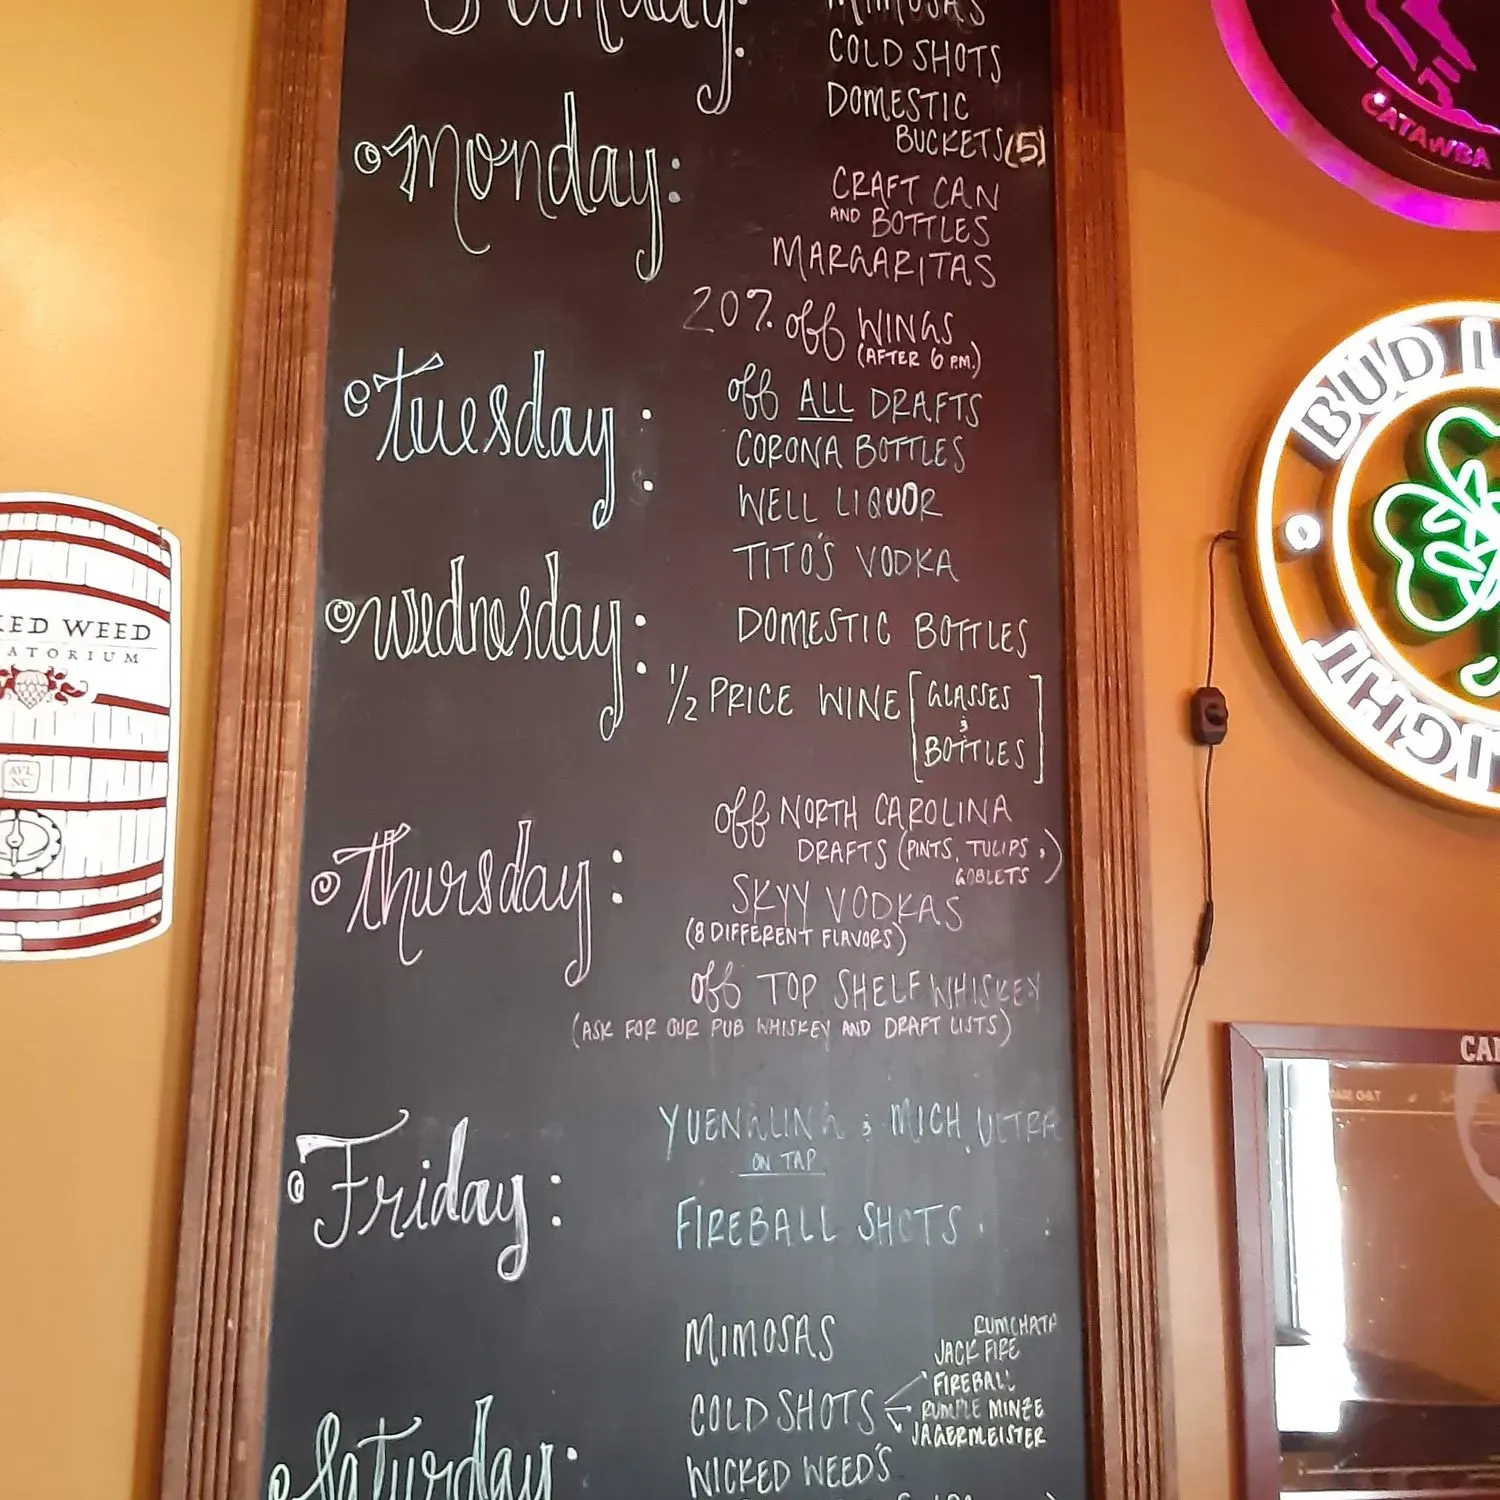 Sunday:
MIMOSAS
COLD SHOTS
DOMESTIC
BUCKETS (5)
Monday:
CRAFT CAN
AND BOTTLES
MARGARITAS
20% off WINGS
(AFTER 6 P.M.)
Tuesday:
off ALL DRAFTS
CORONA BOTTLES
WELL LIQUOR
TITO'S VODKA
Wednesday:
DOMESTIC BOTTLES
1/2 PRICE WINE [GLASSES
&
BOTTLES]
Thursday:
off NORTH CAROLINA
DRAFTS (PINTS, TULIPS &
GOBLETS)
SKYY VODKAS
(8 DIFFERENT FLAVORS)
off TOP SHELF WHISKEY
(ASK FOR OUR PUB WHISKEY AND DRAFT LISTS)
Friday:
YUENGLING & MICH ULTRA
ON TAP
FIREBALL SHOTS
Saturday:
MIMOSAS
COLD SHOTS
RUMCHATA
JACK FIRE
FIREBALL
RUMPLE MINZE
JAGERMEISTER
WICKED WEED'S
KED WEED
ATORIUM
AVL
NC
CATAWBA
BUD L
LIGHT